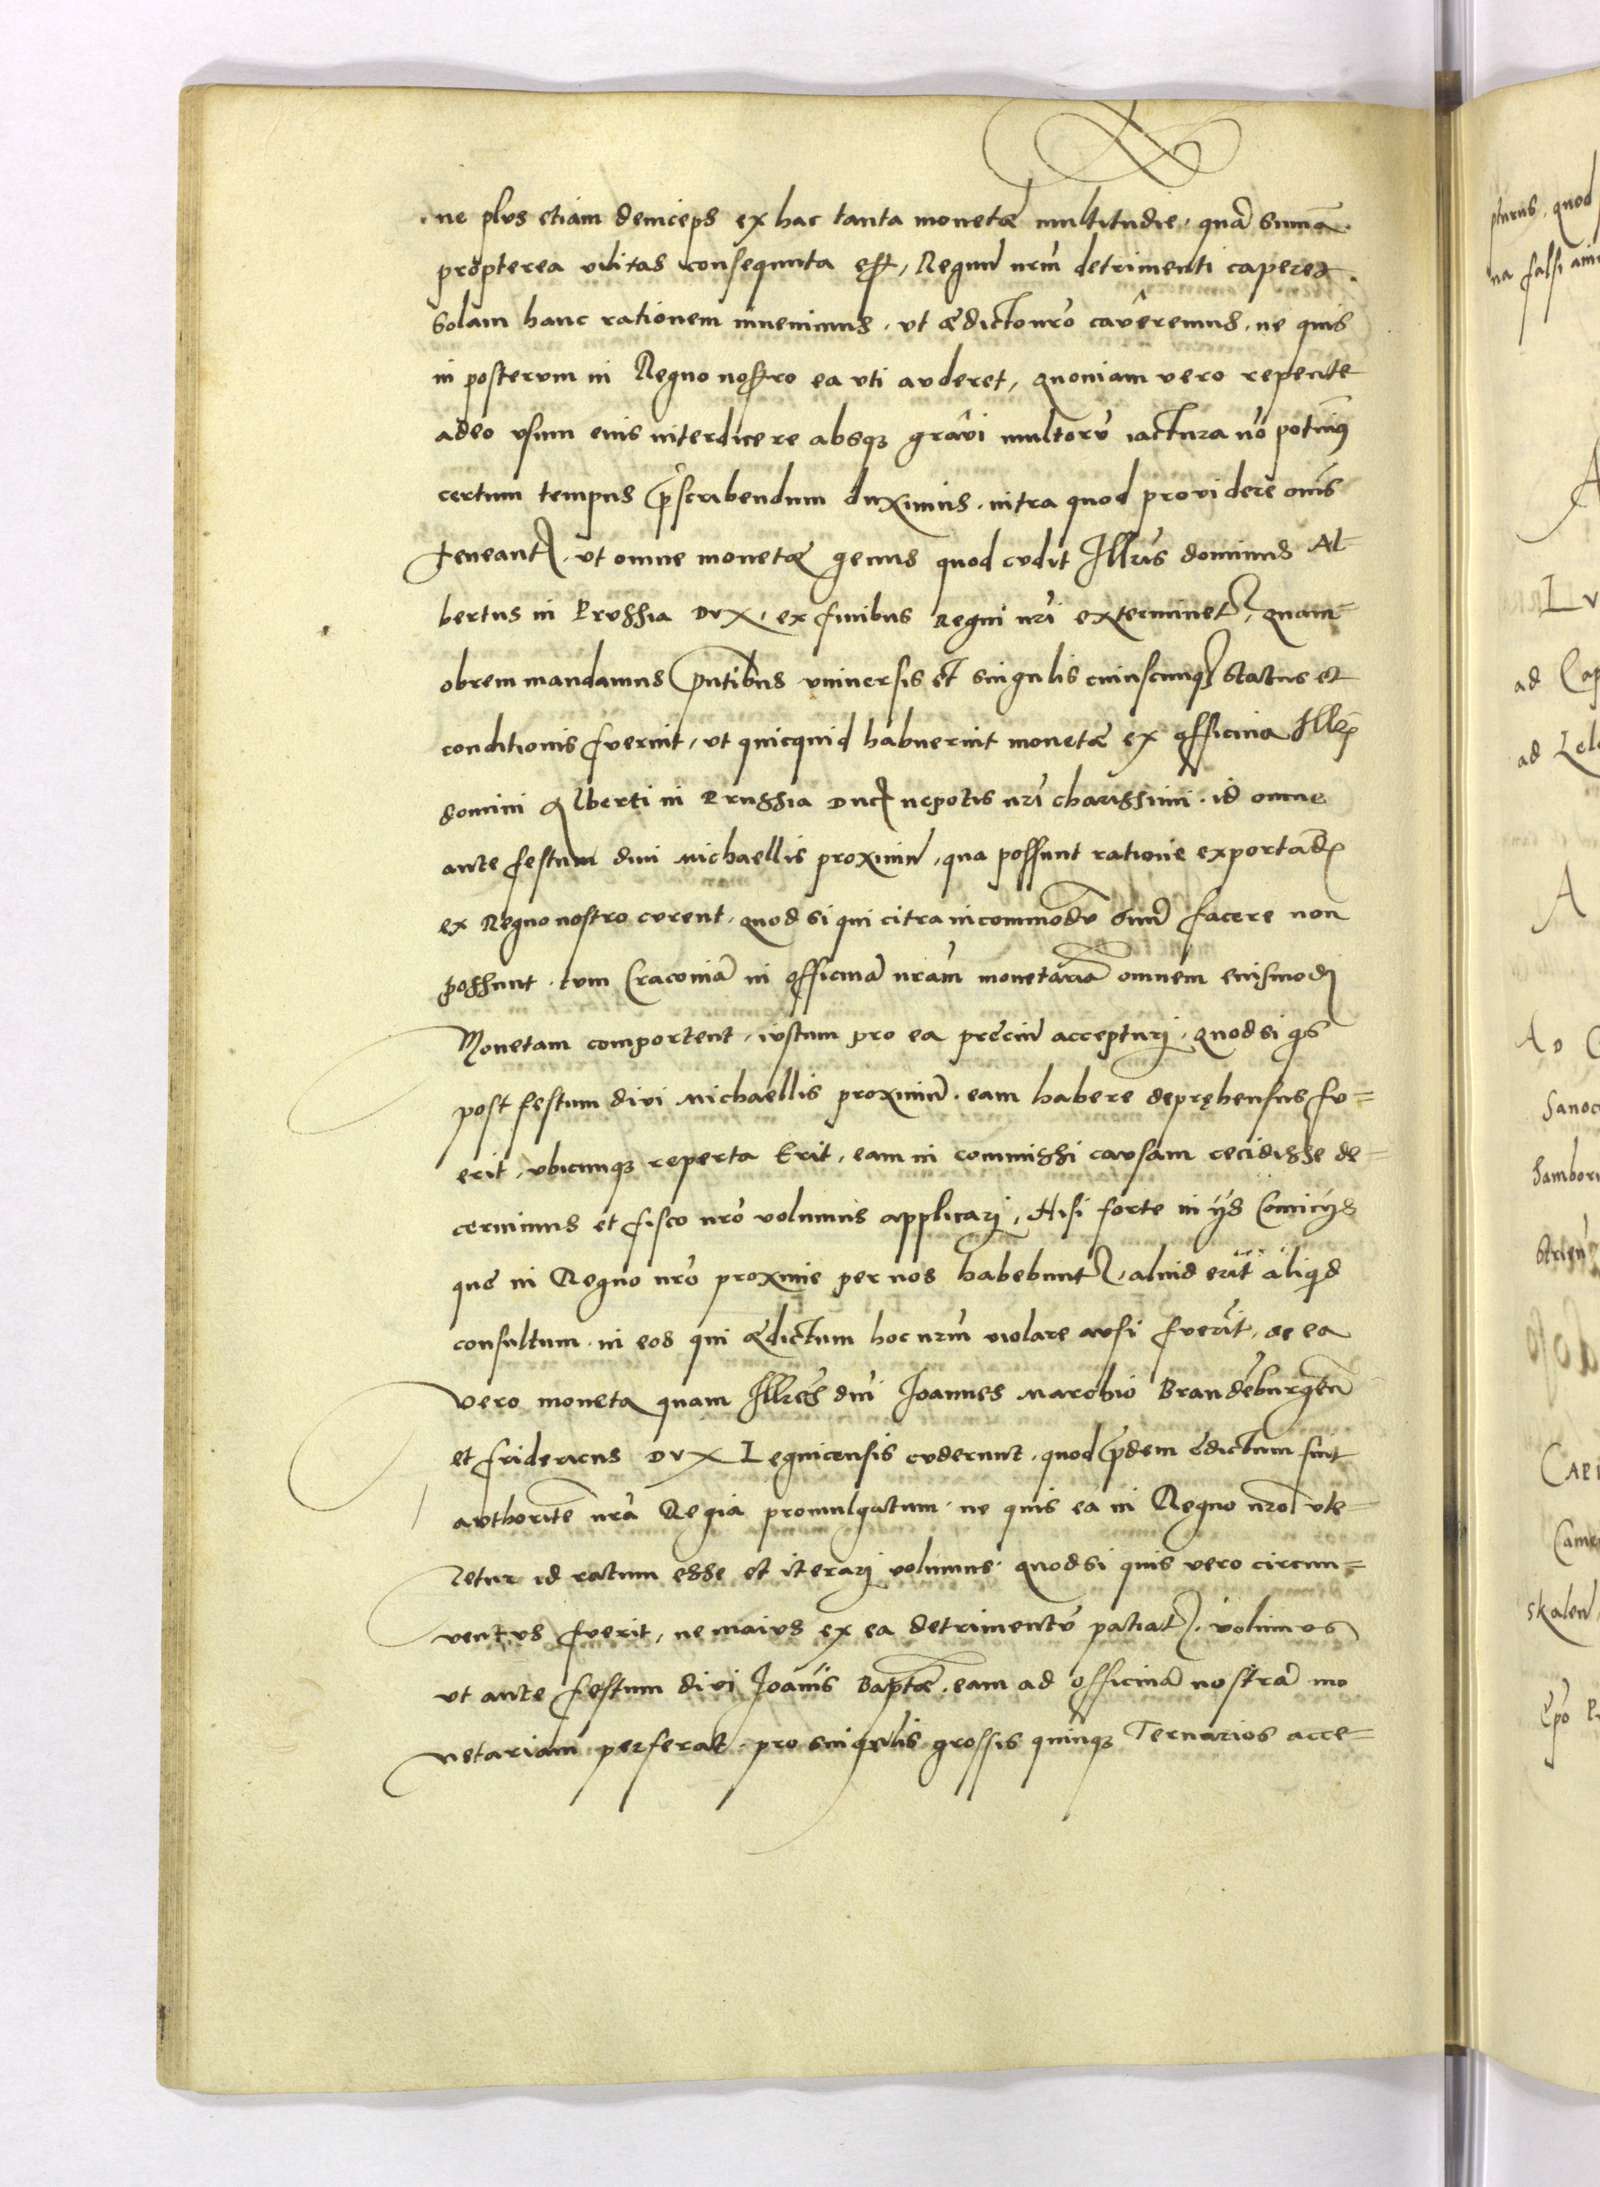 ne plus etiam deinceps ex hac tanta monetæ multitudie, quā summā
propterea vilitas consequuta est, Regnū nr̄m detrimenti caperet.
Solam hanc rationem invenimus, ut ædicto nrō caveremus, ne quis
in posterum in Regno nostro ea uti auderet, Quoniam vero repente
adeo usum eius interdicere absq; gravi multorū iactura nō potuim9
certum tempus p̄scribendum duximus, intra quod providere om̄s
teneant̃, ut omne monetæ genus quod cudit Illr̄is dominus Al-
bertus in Prussia Dux, ex finibus Regni nr̄i exterminet̃, Quam-
obrem mandamus p̄ntibus universis et singulis cuiuscunq; status et
conditionis fuerint, ut quicquid habuerint monetæ ex officina Illr̄
domini Alberti in Prussia Duc̃ nepotis nr̄i charissimi, id omne
ante festum divi Michaellis proximū, qua possunt ratione exportand̃
ex Regno nostro curent, quod si qui citra incommodū suū facere non
possunt, tum Cracoviā in officinā nrām monetariā omnem eiusmodj
Monetam comportent, iustum pro ea preciū accepturj, Quod si q̄s
post festum divi Michaellis proximū, eam habere deprehensus fu-
erit, ubicunq; reperta erit, eam in commissi causam cecidisse de-
cernimus et fisco nrō volumus applicarj, Nisi forte in ijs Comicijs
que in Regno nrō proxime per nos habebunt̃, aliud erit aliqd
consultum, in eos qui ædictum hoc nr̄m violare ausi fuerīt, de ea
vero moneta quam Illr̄es dn̄i Joannes Marchio Brandēburgen̄
et Fridericus Dux Legnicensis cuderunt, quod p̄dem ędictum fuit
authorit̄e nr̄a Regia promulgatum, ne quis ea in Regno nrō ute-
retur id ratum esse et iterarj volumus, quod si quis vero circum-
ventus fuerit, ne maius ex ea detrimentū patiat̃, volumus
ut ante festum divi Joānis Bap̄tæ, eam ad officinā nostrā mo
netariam perferat, pro singulis grossis quinq; Ternarios acce-